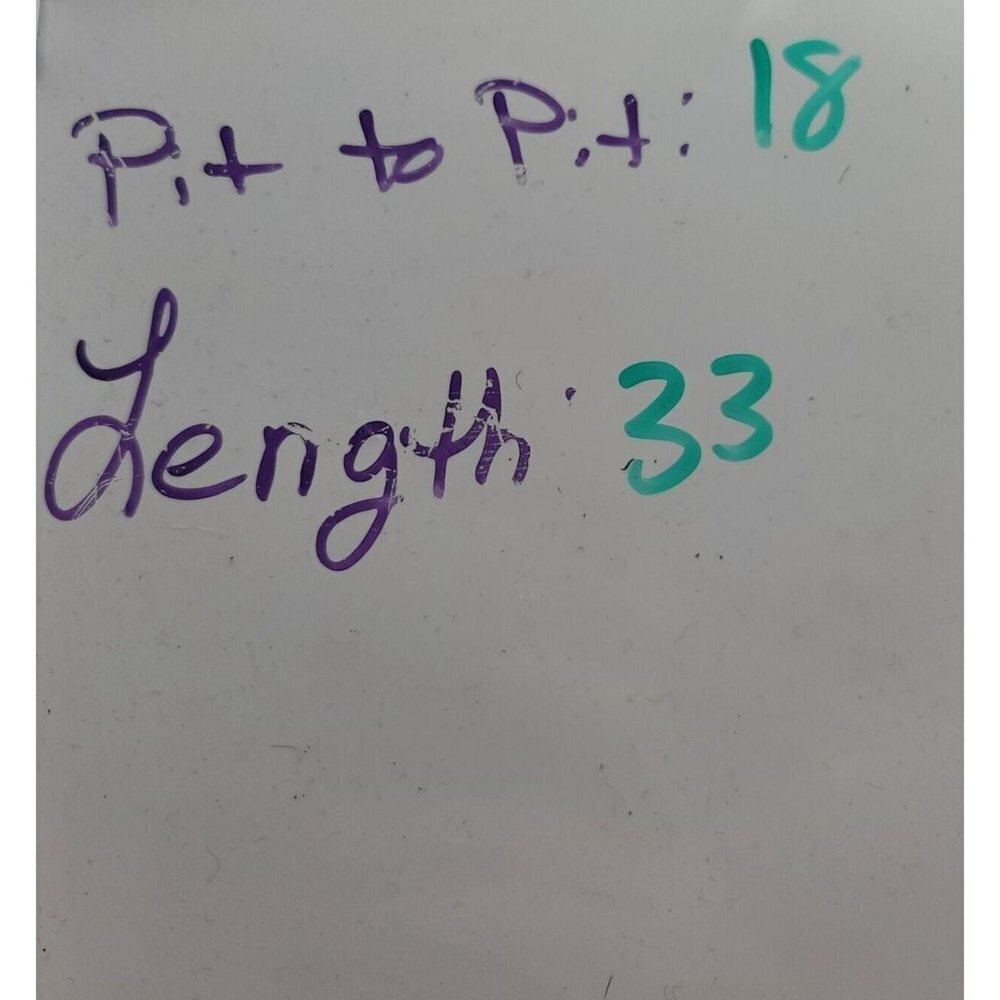 Pit to Pit: 18
Length: 33